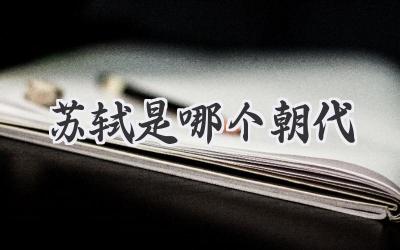 苏轼是哪个朝代